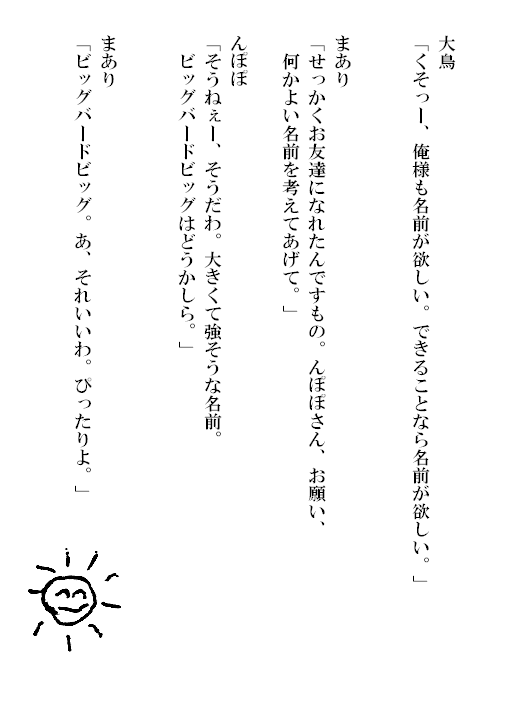 大鳥
「くそっー、俺様も名前が欲しい。できることなら名前が欲しい。」
まあり
「せっかくお友達になれたんですもの。んぽぽさん、お願い、
何かよい名前を考えてあげて。」
んぽぽ
「そうねぇー、そうだわ。大きくて強そうな名前。
ビッグバードビッグはどうかしら。」
まあり
「ビッグバードビッグ。あ、それいいわ。ぴったりよ。」